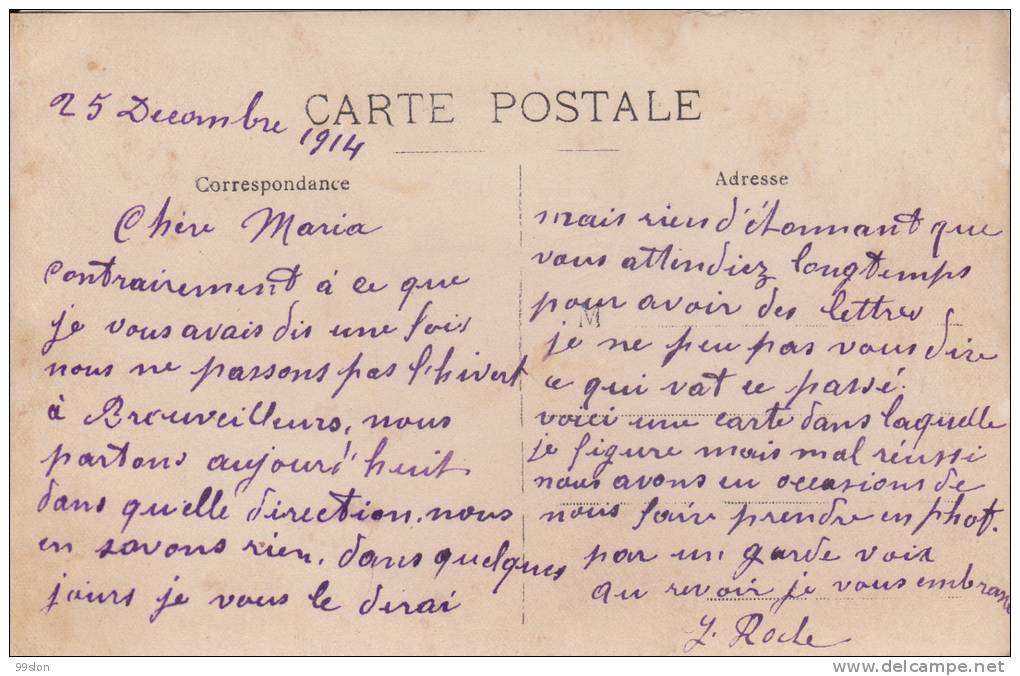 25 Decembre
1914
CARTE POSTALE
Correspondance
Chère Maria
contrairement à ce que
je vous avais dis une fois
nous ne passons pas l'hivert
à Brouveilleurs, nous
partons aujourd'huit
dans qu'elle direction, nous
en savons rien, dans quelques
jours je vous le dirai
Adresse
mais rien d'étonnant que
vous attendiez longtemps
pour avoir des lettres
M
je ne peu pas vous dire
ce qui vat ce passé.
voici une carte dans laquelle
je figure mais mal réussi
nous avons eu occasions de
nous faire prendre en phot.
par un garde voix
au revoir je vous embrasse
Roche
99slon
delcampe.net